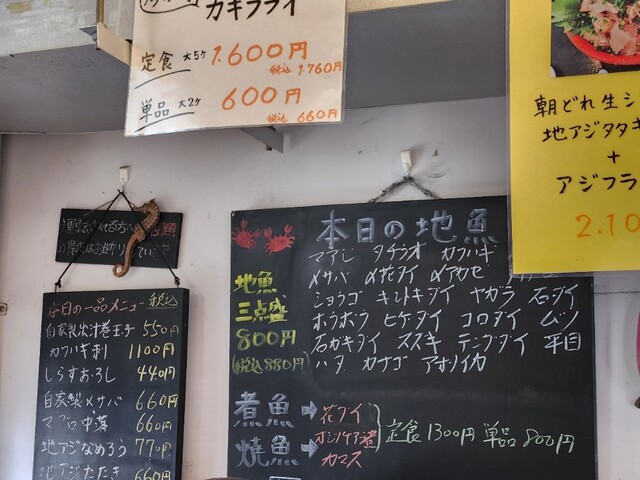 カキフライ
定食 大5ケ 1.600円
税込 1.760円
単品 大2ケ 600円
税込 660円
朝どれ生シ
地アジタタキ
+
アジフラ
2.10
本日の一品メニュー 税込
自家製出汁巻玉子 550円
カワハギ刺 1100円
しらすおろし 440円
自家製〆サバ 660円
マグロ中落 660円
地アジなめろう 770円
地アジたたき 660円
本日の地魚
地魚
三点盛
800円
(税込880円)
マアジ タチウオ カワハギ
〆サバ 〆花ダイ
ショウゴ キントキダイ ヤガラ 石ダイ
ホウボウ ヒゲダイ コロダイ ムツ
石カキダイ スズキ テンブダイ 平目
ハタ カナゴ アオリイカ
煮魚→花ダイ
焼魚→カマス
定食1300円 単品800円